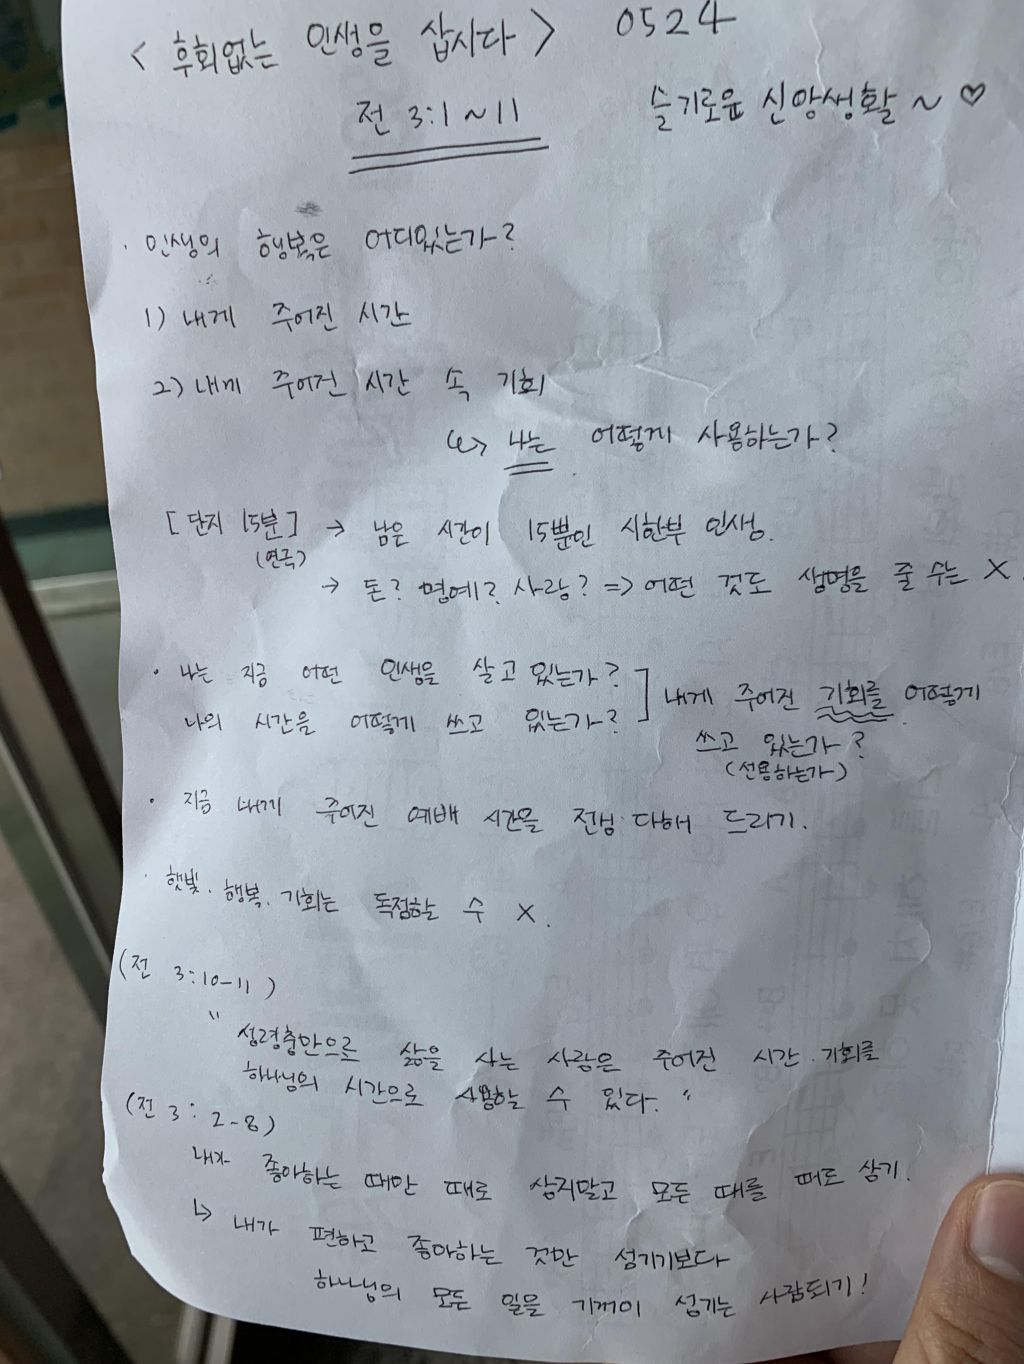 < 후회없는 인생을 삽시다 > 0524
전 3:1~11 슬기로운 신앙생활~♡
· 인생의 행복은 어디있는가?
1) 내게 주어진 시간
2) 내게 주어진 시간 속 기회
↳ 나는 어떻게 사용하는가?
[단지 15분] → 남은 시간이 15뿐인 시한부 인생.
(연극)
→ 돈? 명예? 사랑? => 어떤 것도 생명을 줄 수는 X.
· 나는 지금 어떤 인생을 살고 있는가?
나의 시간을 어떻게 쓰고 있는가?
] 내게 주어진 기회를 어떻게
쓰고 있는가?
(선용하는가)
· 지금 내게 주어진 예배 시간을 전심 다해 드리기.
· 햇빛. 행복. 기회는 독점할 수 X.
(전 3:10-11)
" 성령충만으로 삶을 사는 사람은 주어진 시간. 기회를
하나님의 시간으로 사용할 수 있다. "
(전 3: 2-8)
내가 좋아하는 때만 때로 삼지말고 모든 때를 때로 삼기.
↳ 내가 편하고 좋아하는 것만 섬기기보다
하나님의 모든 일을 기꺼이 섬기는 사람되기!